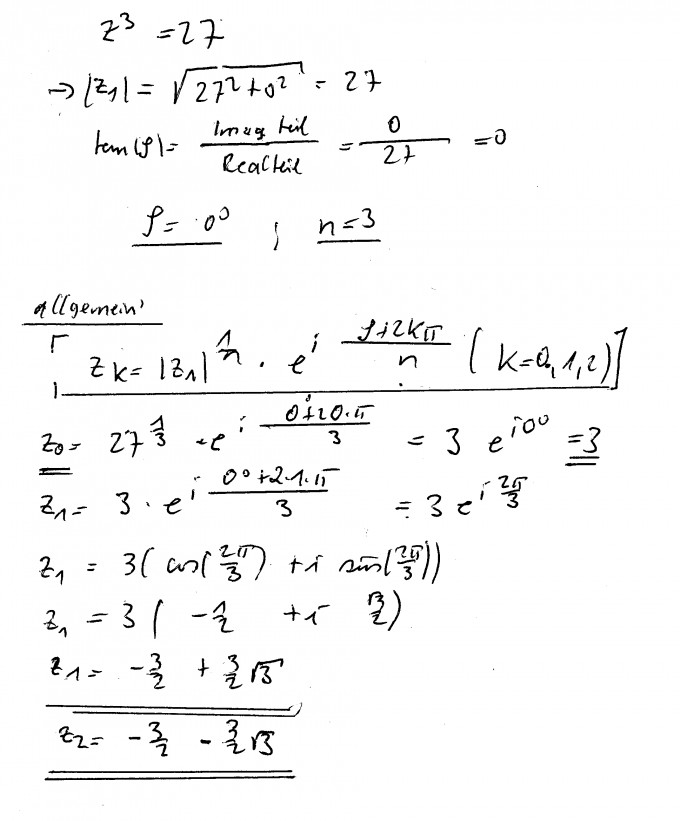 z³ = 27
→ |z₁| = √(27² + 0²) = 27
tan(φ) = Imag teil / Realteil = 0 / 27 = 0
φ = 0° ; n = 3
allgemein:
[ zk = |z₁|^(1/n) · e^(i (φ+2kπ)/n) (k=0,1,2) ]
z₀ = 27^(1/3) · e^(i (0°+2·0·π)/3) = 3 e^(i0°) = 3
z₁ = 3 · e^(i (0°+2·1·π)/3) = 3 e^(i 2π/3)
z₁ = 3( cos(2π/3) + i sin(2π/3))
z₁ = 3( -1/2 + i √3/2)
z₁ = -3/2 + 3/2 √3
z₂ = -3/2 - 3/2 √3